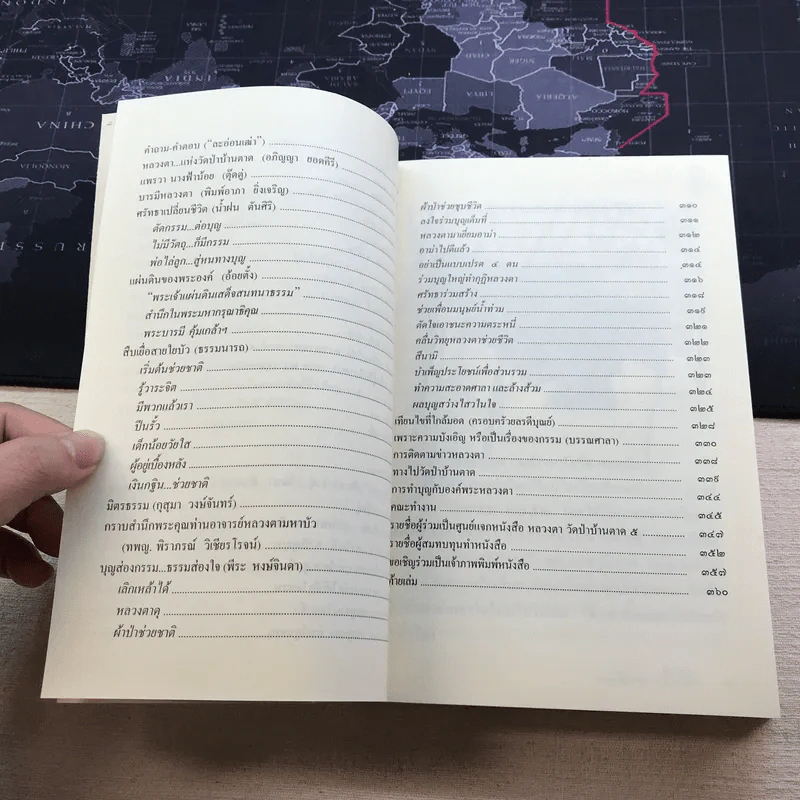 คำถาม-คำตอบ ("ละอ่อนเฒ่า")
หลวงตา...แห่งวัดป่าบ้านตาด (อภิญญา ยอดคีรี)
แพรวา นางฟ้าน้อย (ตุ๊ดตู่)
บารมีหลวงตา (พิมพ์อาภา ยิ่งเจริญ)
ศรัทธาเปลี่ยนชีวิต (น้ำฝน ตันศิริ)
ตัดกรรม...ต่อบุญ
ไม่มีวัตถุ...ก็มีกรรม
พ่อไล่ลูก...สู่หนทางบุญ
แผ่นดินของพระองค์ (อ้อยตั้ง)
"พระเจ้าแผ่นดินเสด็จสนทนาธรรม"
สำนึกในพระมหากรุณาธิคุณ
พระบารมี คุ้มเกล้าฯ
สืบเยื่อสายใยบัว (ธรรมนารถ)
เริ่มต้นช่วยชาติ
รู้วาระจิต
มีพวกแล้วเรา
ปีนรั้ว
เด็กน้อยวัยใส
ผู้อยู่เบื้องหลัง
เงินกฐิน...ช่วยชาติ
มิตรธรรม (กุสุมา วงษ์จันทร์)
กราบสำนึกพระคุณท่านอาจารย์หลวงตามหาบัว
(ทพญ. พิราภรณ์ วิเชียรโรจน์)
บุญส่องกรรม...ธรรมส่องใจ (พีระ หงษ์จินดา)
เลิกเหล้าได้
หลวงตาดุ
ผ้าป่าช่วยชาติ
ผ้าป่าช่วยชุบชีวิต ๓๑๐
ลงใจร่วมบุญเต็มที่ ๓๑๑
หลวงตามาเยี่ยมอาม่า ๓๑๒
อาม่าไปดีแล้ว ๓๑๔
อย่าเป็นแบบเปรต ๔ ตน ๓๑๔
ร่วมบุญใหญ่ทำกุฏิหลวงตา ๓๑๖
ศรัทธาร่วมสร้าง ๓๑๘
ช่วยเพื่อนมนุษย์น้ำท่วม ๓๑๙
ตัดใจเอาชนะความตระหนี่ ๓๒๑
คลื่นวิทยุหลวงตาช่วยชีวิต ๓๒๒
สึนามิ ๓๒๓
บำเพ็ญประโยชน์เพื่อส่วนรวม ๓๒๓
ทำความสะอาดศาลา และล้างส้วม ๓๒๔
ผลบุญสว่างไสวในใจ ๓๒๕
เทียนไขที่ใกล้มอด (ครอบครัวยลรดีบุณย์) ๓๒๘
เพราะความบังเอิญ หรือเป็นเรื่องของกรรม (บรรณศาลา) ๓๓๐
การติดตามข่าวหลวงตา ๓๓๘
ทางไปวัดป่าบ้านตาด ๓๓๙
การทำบุญกับองค์พระหลวงตา ๓๔๔
คณะทำงาน ๓๔๕
รายชื่อผู้ร่วมเป็นศูนย์แจกหนังสือ หลวงตา วัดป่าบ้านตาด ๕ ๓๔๗
รายชื่อผู้สมทบทุนทำหนังสือ ๓๕๒
ขอเชิญร่วมเป็นเจ้าภาพพิมพ์หนังสือ ๓๕๗
ท้ายเล่ม ๓๖๐
INDIA
CHINA
MONGOLIA
NIGER
LIBYA
ALGERIA
EGYPT
MALI